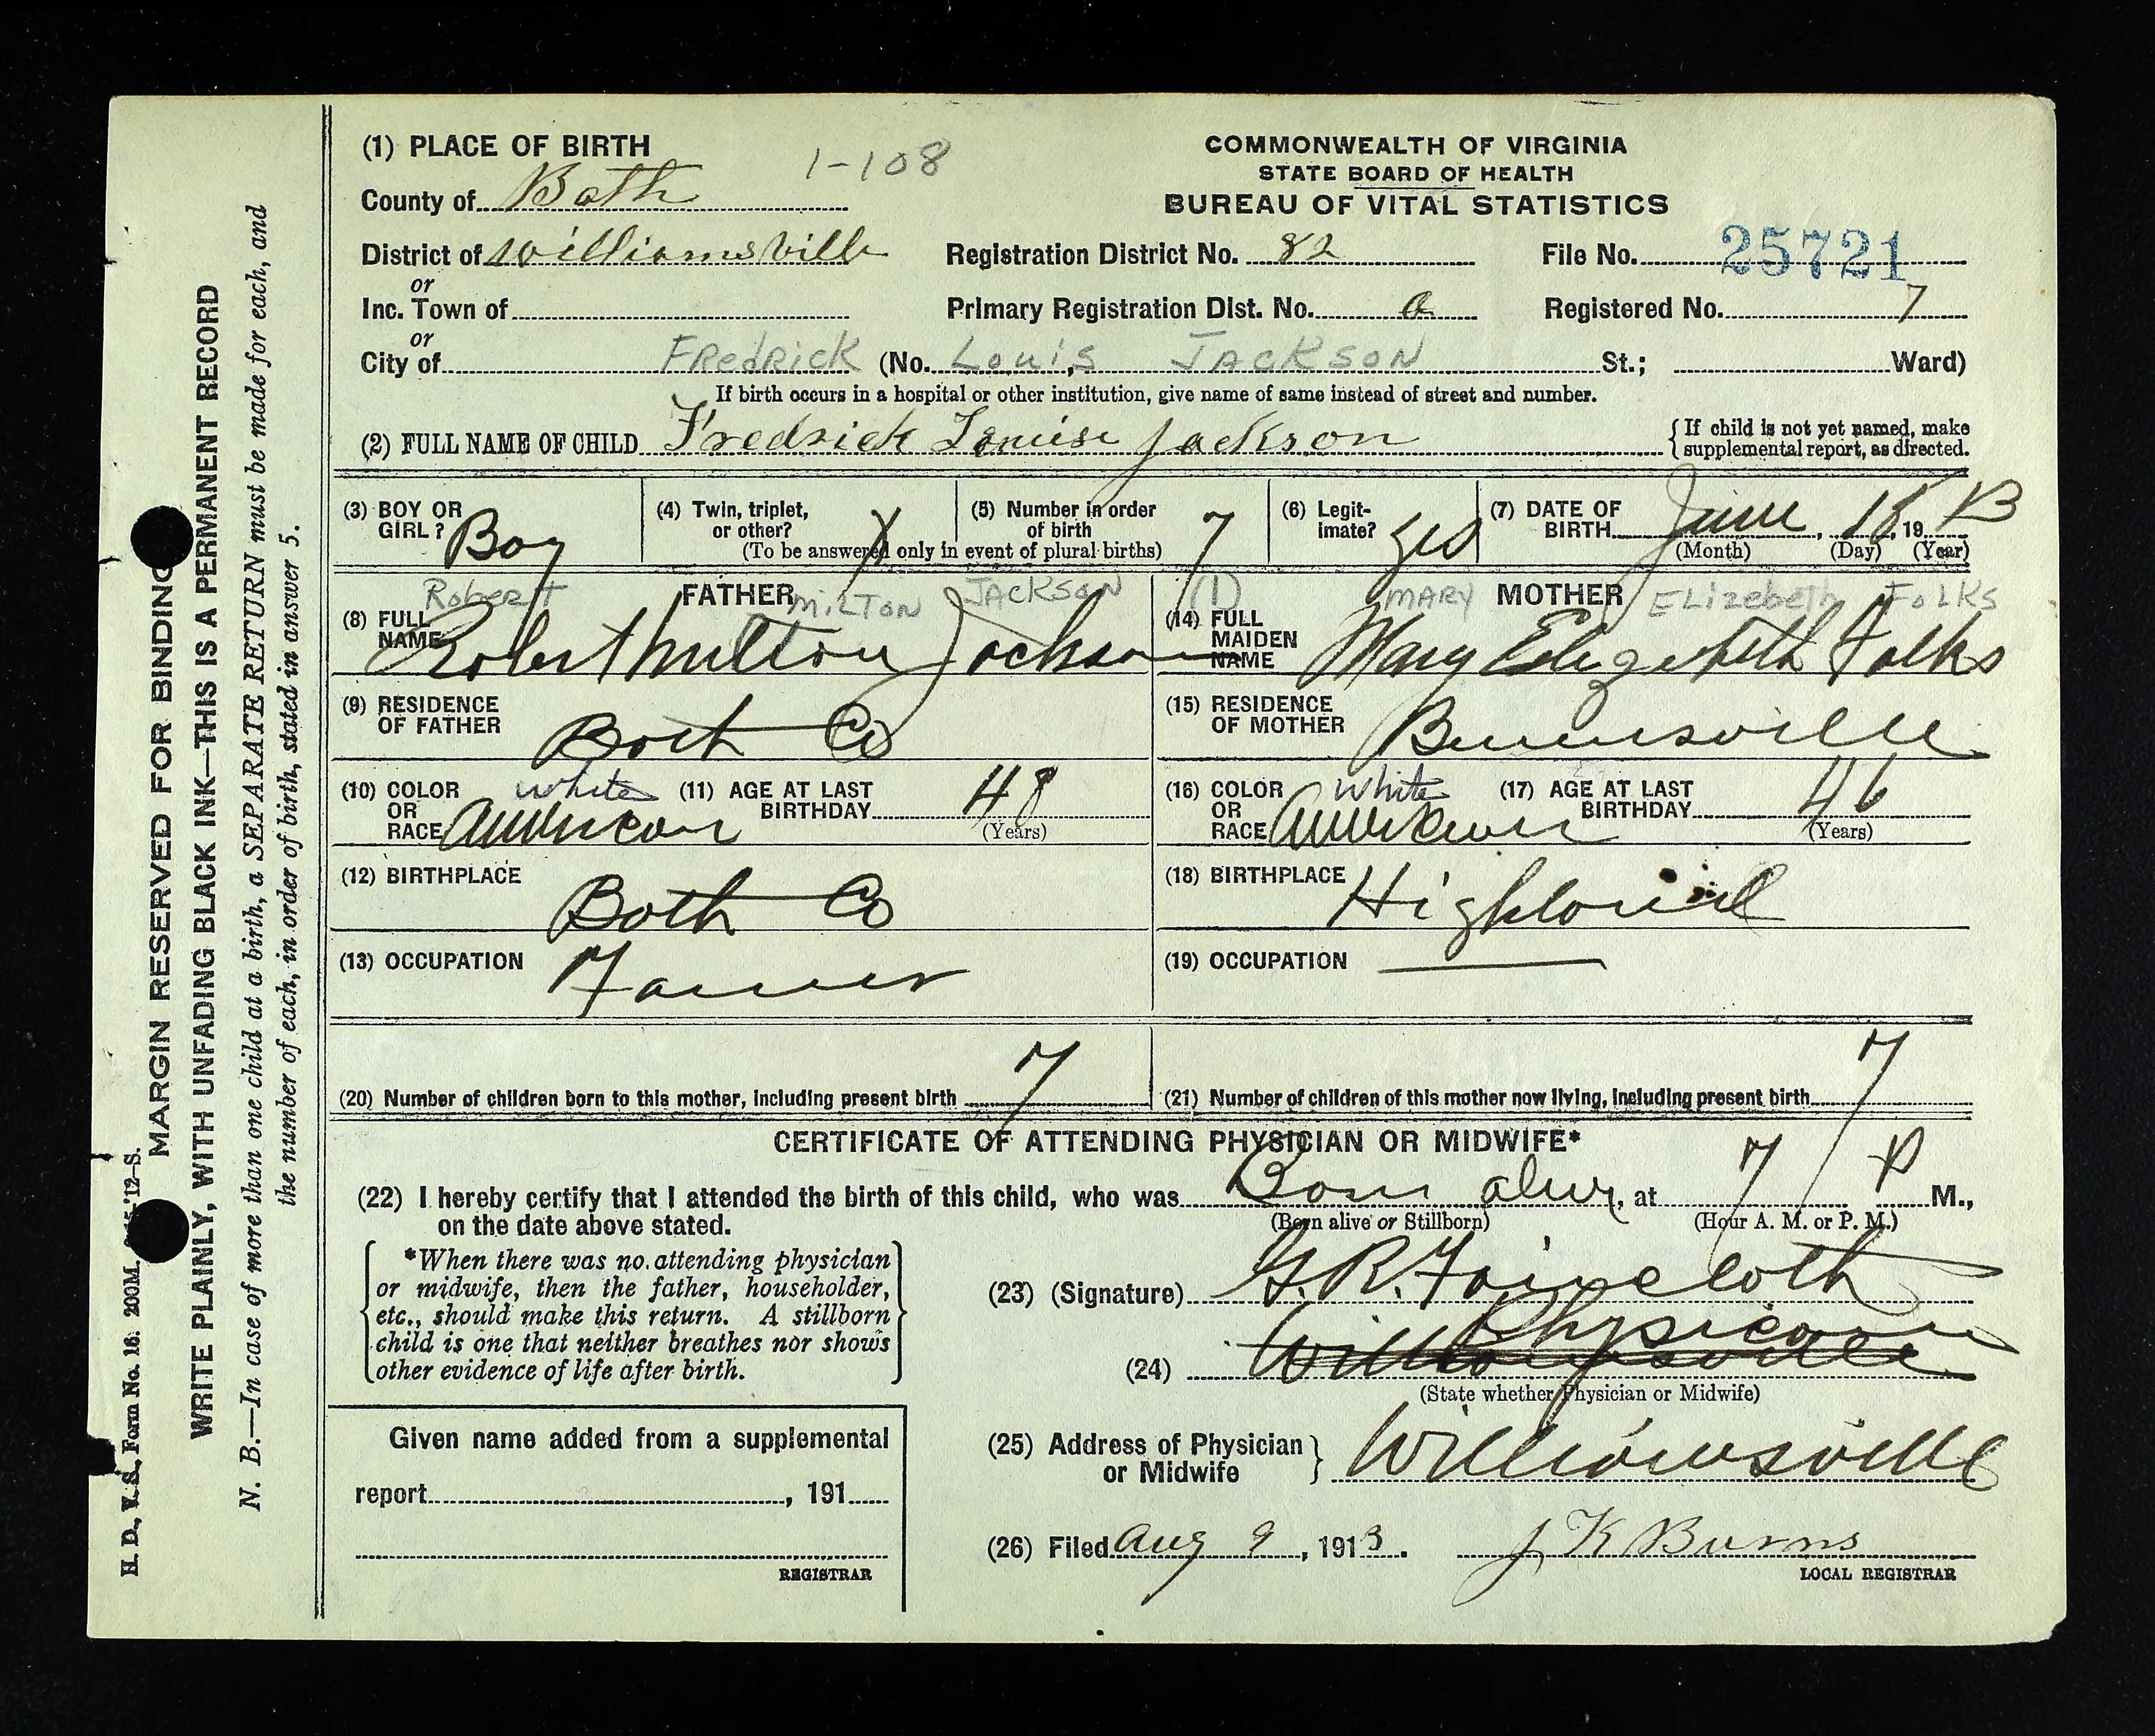 (1) PLACE OF BIRTH 1-108
County of Bath
District of Williamsville
or
Inc. Town of
or
City of Fredrick (No. Louis Jackson St.; Ward)
COMMONWEALTH OF VIRGINIA
STATE BOARD OF HEALTH
BUREAU OF VITAL STATISTICS
Registration District No. 82 File No. 25721
Primary Registration Dist. No. a Registered No. 7
If birth occurs in a hospital or other institution, give name of same instead of street and number.
(2) FULL NAME OF CHILD Fredrick Louise Jackson { If child is not yet named, make supplemental report, as directed.
(3) BOY OR GIRL? Boy
(4) Twin, triplet, or other? X
(5) Number in order of birth 7
(To be answered only in event of plural births)
(6) Legitimate? yes
(7) DATE OF BIRTH June, 18, 1913
(Month) (Day) (Year)
FATHER
Robert Milton Jackson
(8) FULL NAME Robert Milton Jackson
(9) RESIDENCE OF FATHER Bath Co
(10) COLOR OR RACE White American
(11) AGE AT LAST BIRTHDAY 48
(Years)
(12) BIRTHPLACE Bath Co
(13) OCCUPATION Farmer
(1) MOTHER
Mary Elizebeth Folks
(14) FULL MAIDEN NAME Mary Elizebeth Folks
(15) RESIDENCE OF MOTHER Burnsville
(16) COLOR OR RACE White American
(17) AGE AT LAST BIRTHDAY 46
(Years)
(18) BIRTHPLACE Highland
(19) OCCUPATION
(20) Number of children born to this mother, including present birth 7
(21) Number of children of this mother now living, including present birth 7
CERTIFICATE OF ATTENDING PHYSICIAN OR MIDWIFE*
(22) I hereby certify that I attended the birth of this child, who was Born alive, at 7 P M.,
(Born alive or Stillborn) (Hour A. M. or P. M.)
on the date above stated.
*When there was no attending physician
or midwife, then the father, householder,
etc., should make this return. A stillborn
child is one that neither breathes nor shows
other evidence of life after birth.
(23) (Signature) G. R. Faircloth
Physician
(24) Williamsville
(State whether Physician or Midwife)
(25) Address of Physician or Midwife } Williamsville
(26) Filed Aug 9, 1913. J K Burns
LOCAL REGISTRAR
Given name added from a supplemental
report, 191
REGISTRAR
MARGIN RESERVED FOR BINDING
WRITE PLAINLY, WITH UNFADING BLACK INK—THIS IS A PERMANENT RECORD
N. B.—In case of more than one child at a birth, a SEPARATE RETURN must be made for each, and
the number of each, in order of birth, stated in answer 5.
H. D., V. S., Form No. 16. 200M. '12-S.